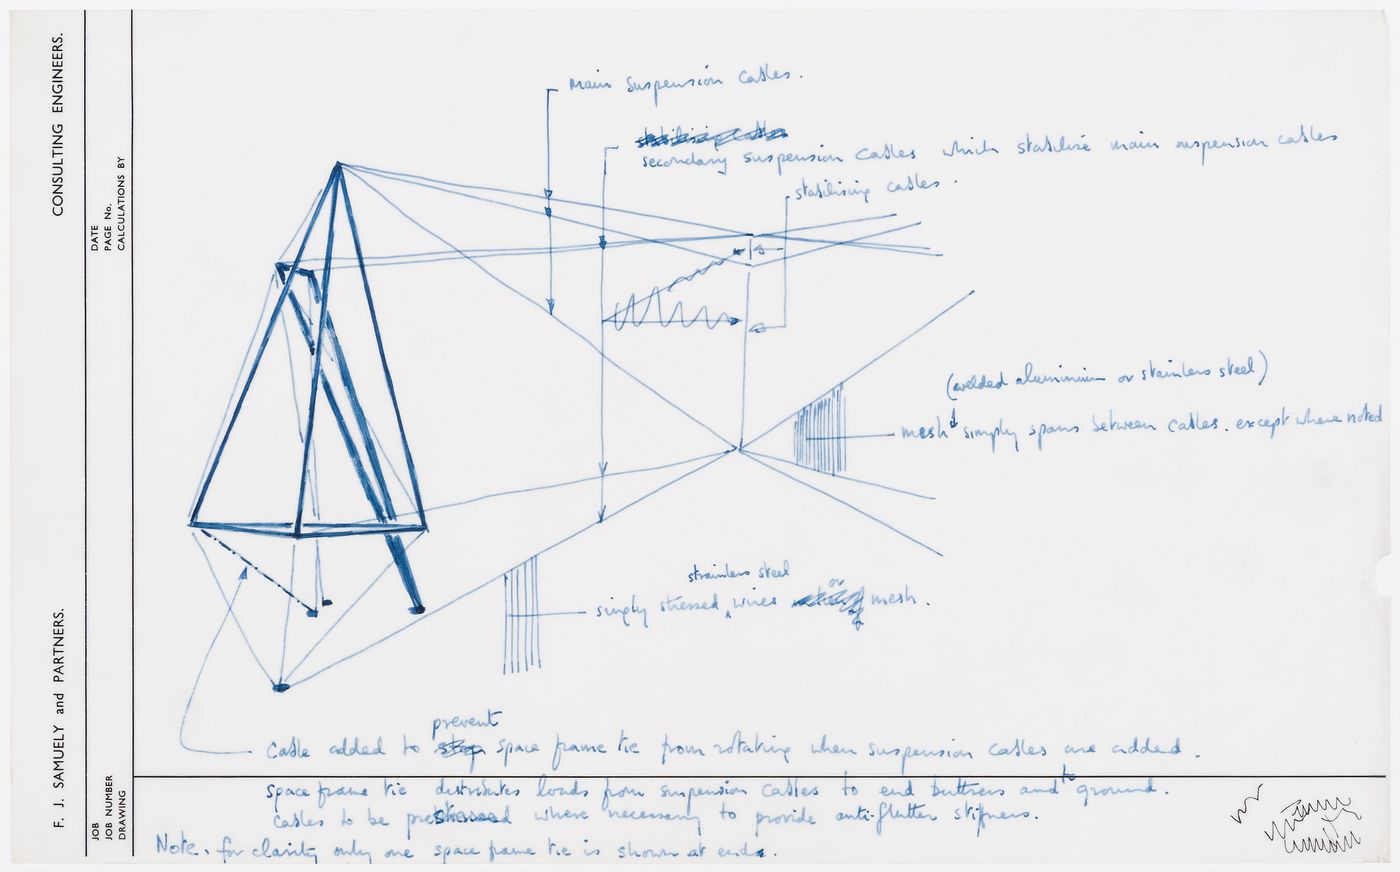 CONSULTING ENGINEERS.
F. J. SAMUELY and PARTNERS.
DATE
PAGE No.
CALCULATIONS BY
JOB
JOB NUMBER
DRAWING
main suspension cables.
secondary suspension cables which stabilise main suspension cables
stabilising cables.
(welded aluminium or stainless steel)
mesh simply spans between cables. except where noted
strainless steel
simply stressed wires or mesh.
prevent
cable added to space frame tie from rotating when suspension cables are added.
space frame tie distributes loads from suspension cables to end buttress and to ground.
cables to be prestressed where necessary to provide anti-flutter stifness.
Note. for clarity only one space frame tie is shown at ends.